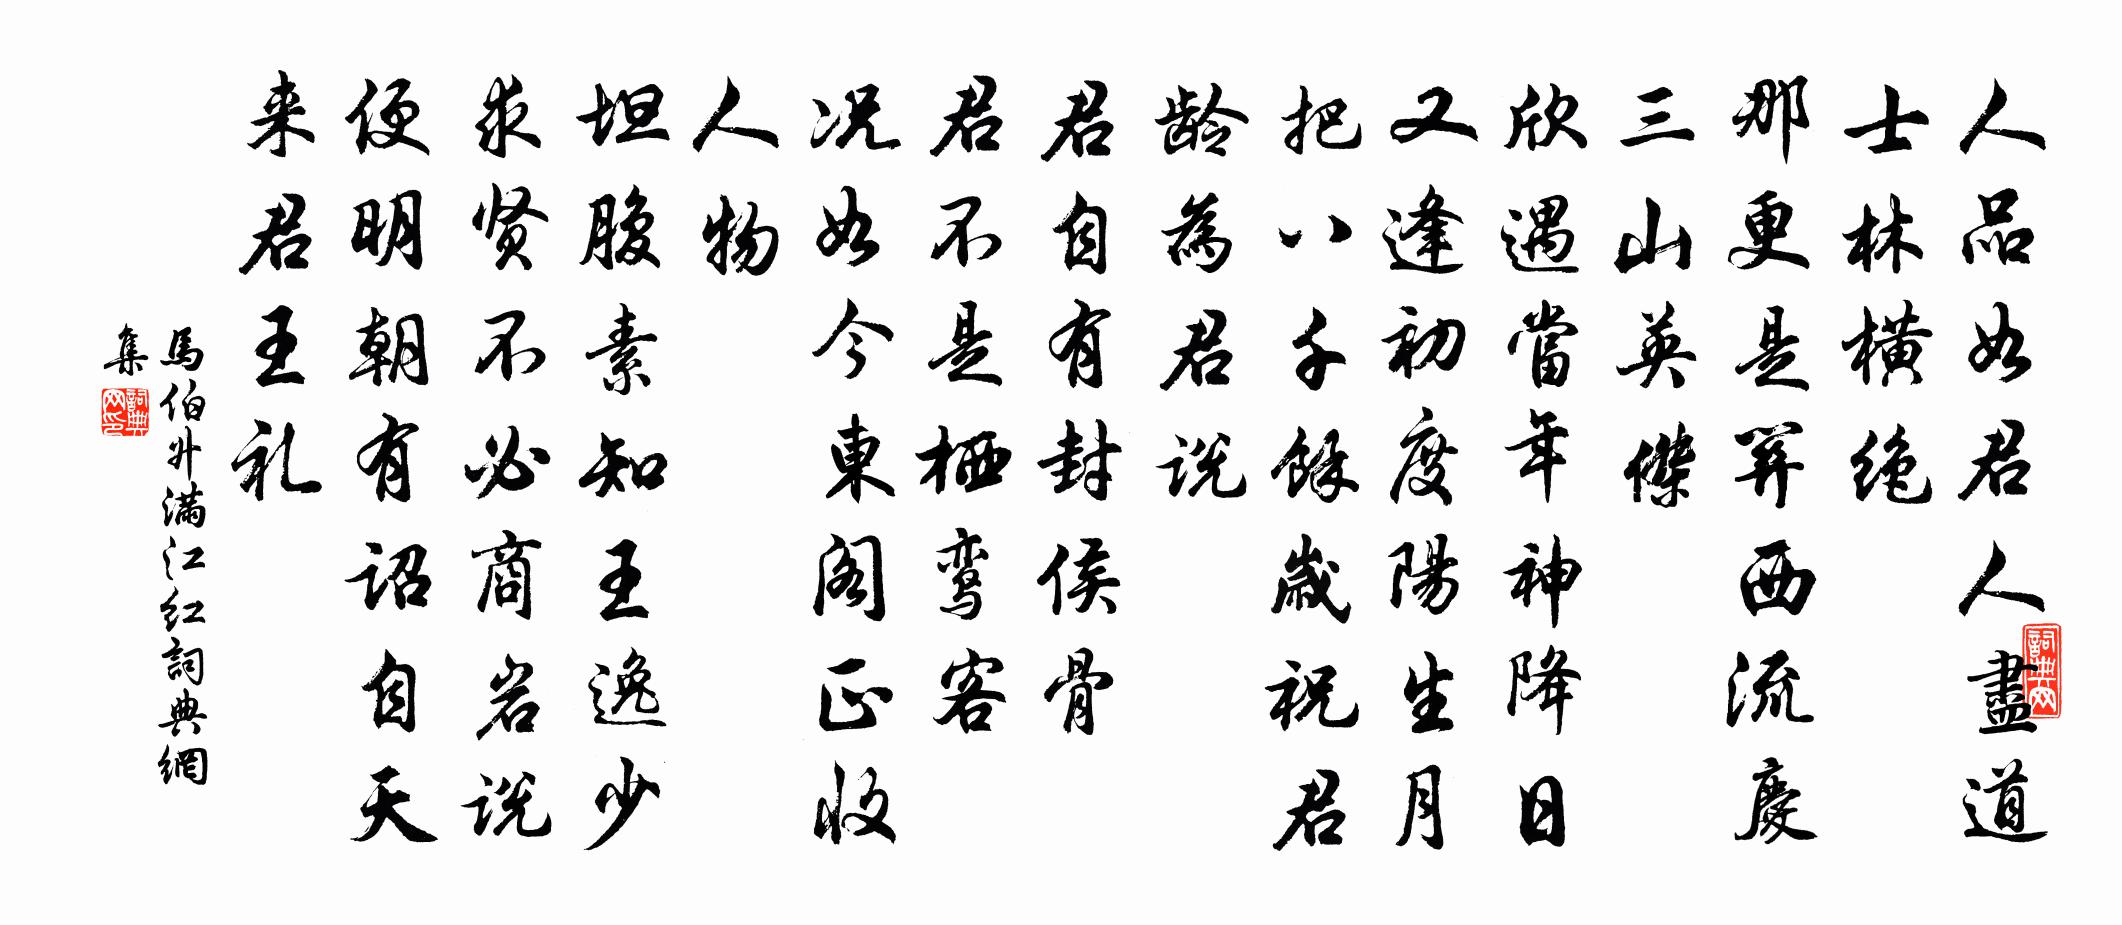 人品如君人盡道
士林橫絕
那更是笄西流慶
三山英傑
欣遇當年神降日
又逢初度陽生月
把八千餘歲祝君
齡為君說
君自有封侯骨
君不是栖鸾客
况如今東阁正收
人物
坦腹素知王逸少
求贤不必商岩说
便明朝有诏自天
来君王礼
馬伯升满江红詞典網
集
詞典网
詞典网印